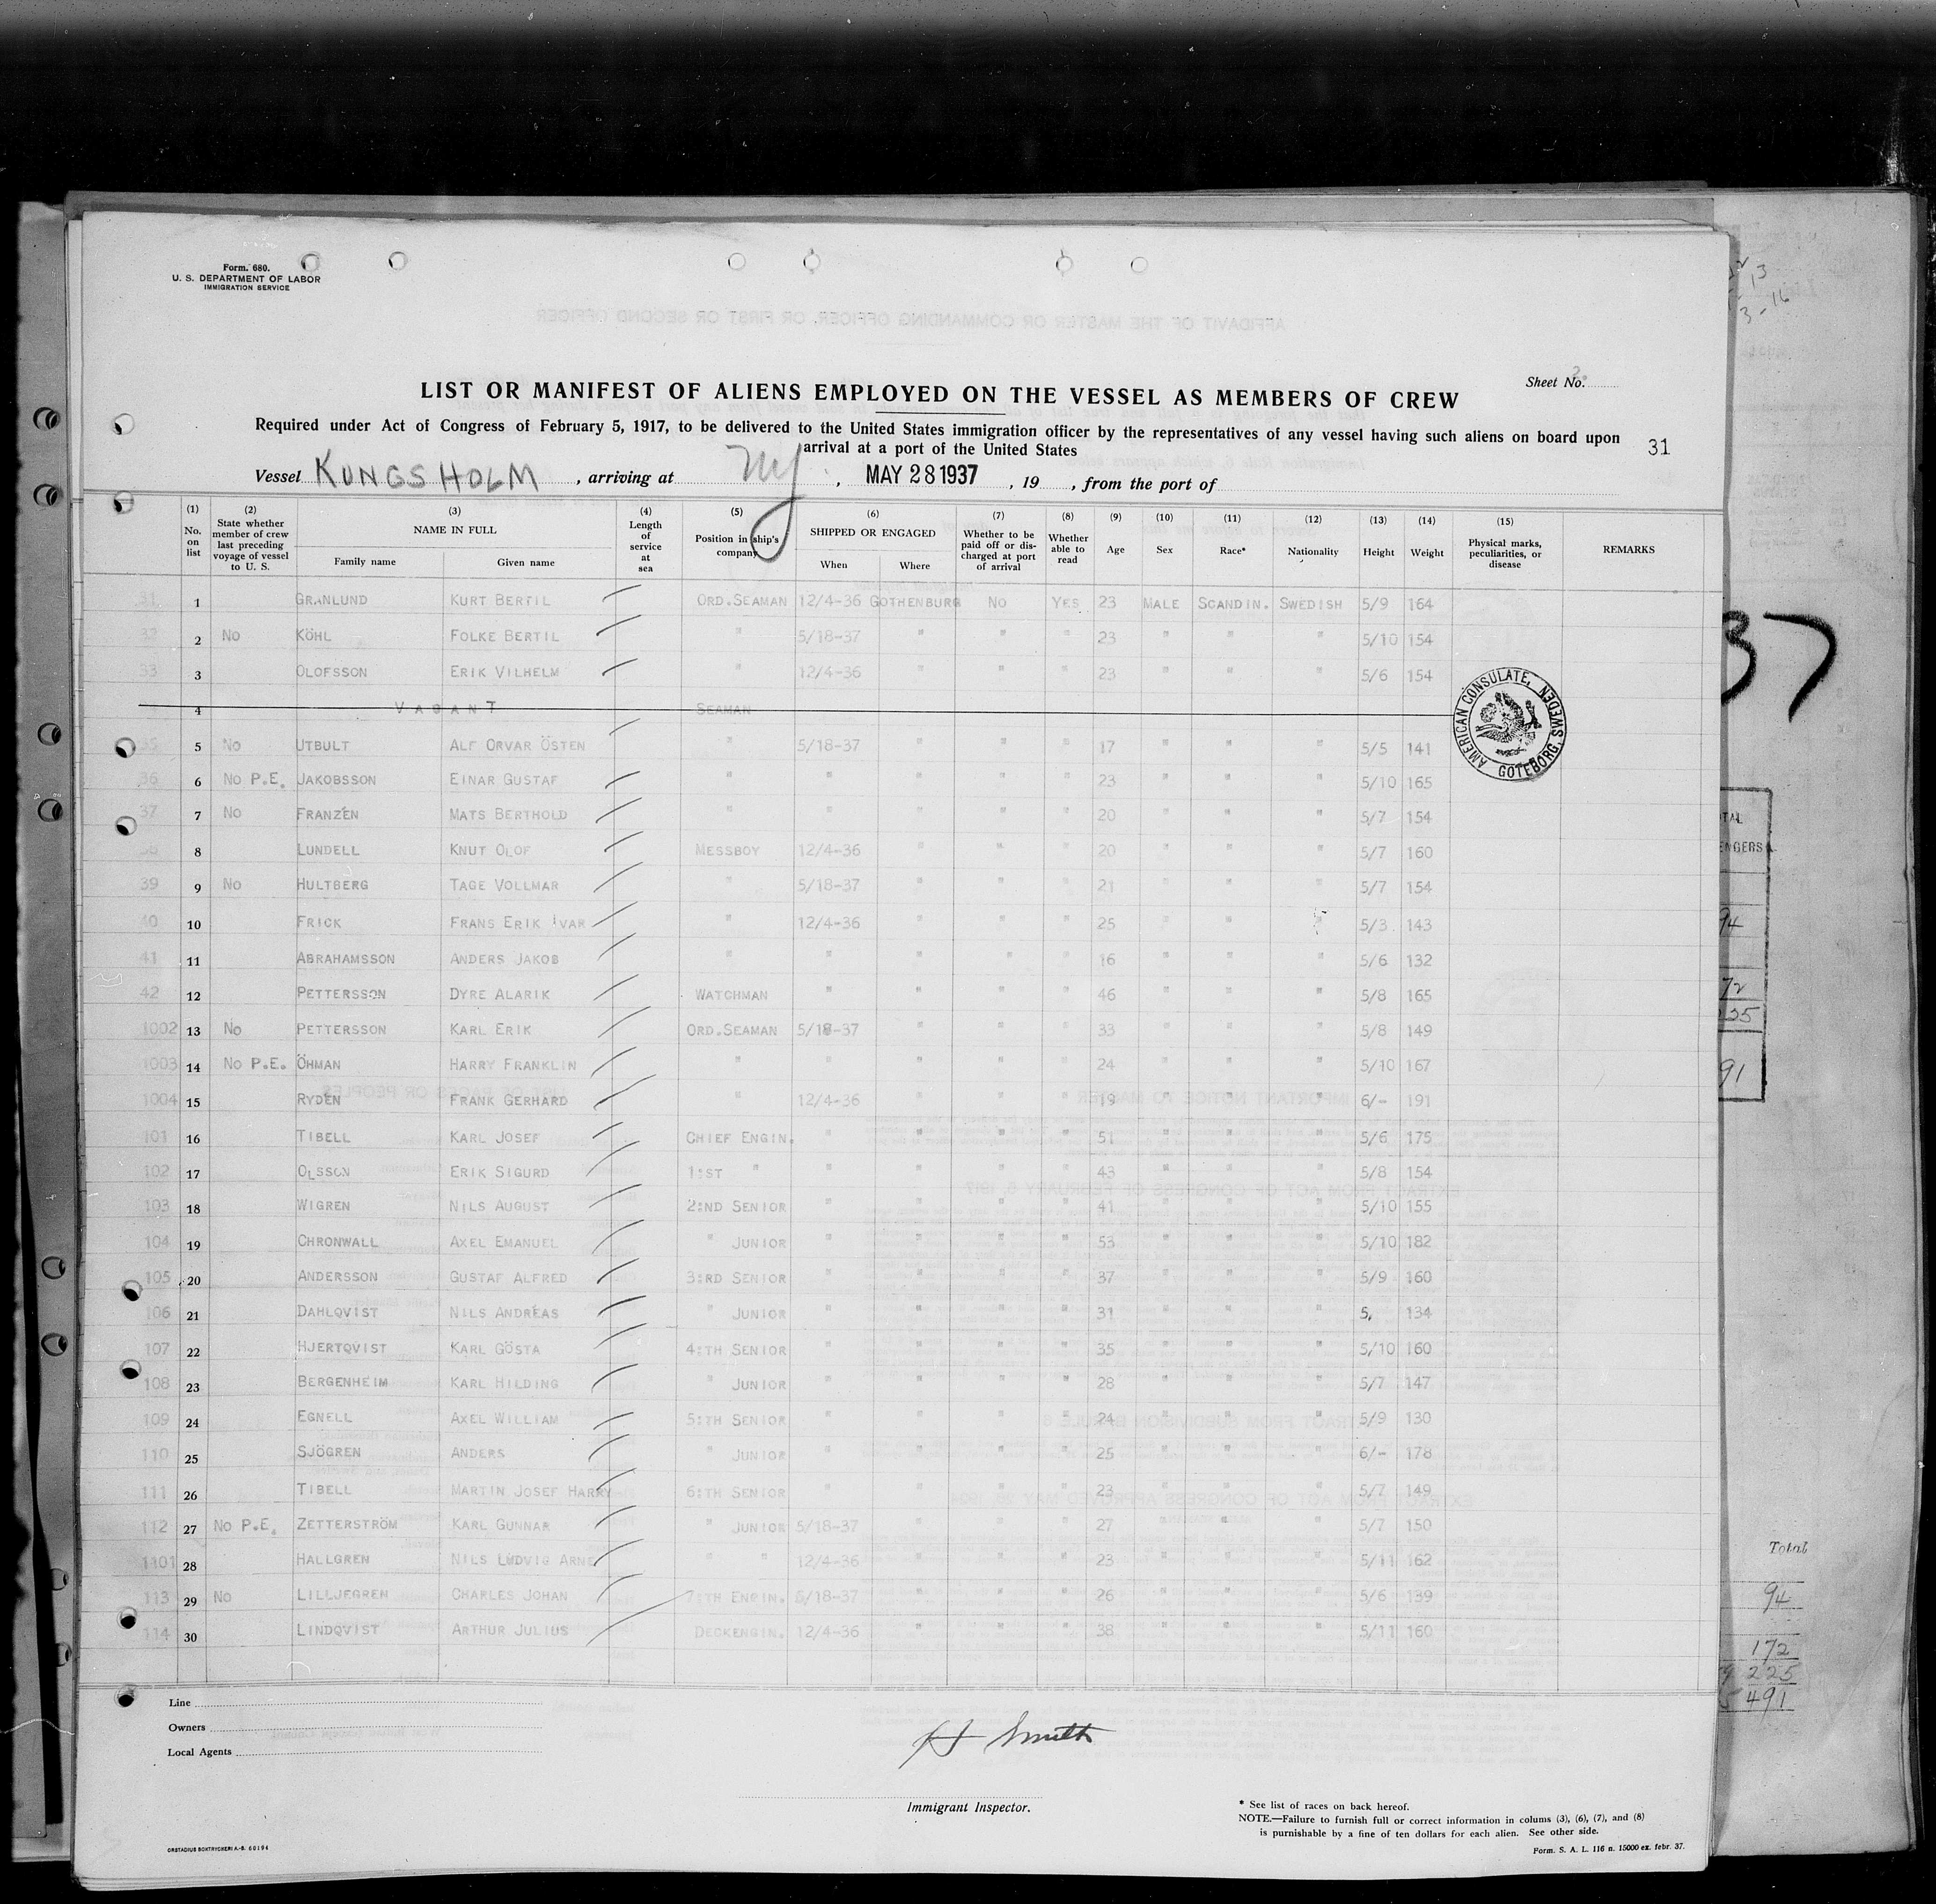 Form. 680.
U. S. DEPARTMENT OF LABOR
IMMIGRATION SERVICE
Sheet No. 2.
LIST OR MANIFEST OF ALIENS EMPLOYED ON THE VESSEL AS MEMBERS OF CREW
Required under Act of Congress of February 5, 1917, to be delivered to the United States immigration officer by the representatives of any vessel having such aliens on board upon
arrival at a port of the United States
31
Vessel KUNGSHOLM , arriving at NY , MAY 28 1937 , 19 , from the port of
(1) (2) (3) (4) (5) (6) (7) (8) (9) (10) (11) (12) (13) (14) (15)
No. on list State whether member of crew last preceding voyage of vessel to U. S. NAME IN FULL Family name Given name Length of service at sea Position in ship's company SHIPPED OR ENGAGED When Where Whether to be paid off or discharged at port of arrival Whether able to read Age Sex Race* Nationality Height Weight Physical marks, peculiarities, or disease REMARKS
31 1 GRANLUND KURT BERTIL ORD.SEAMAN 12/4-36 GOTHENBURG NO YES 23 MALE SCANDIN. SWEDISH 5/9 164
32 2 NO KÖHL FOLKE BERTIL " 5/18-37 " " " 23 " " " 5/10 154
33 3 OLOFSSON ERIK VILHELM " 12/4-36 " " " 23 " " " 5/6 154
4 VACANT SEAMAN
5 NO UTBULT ALF ORVAR ÖSTEN " 5/18-37 " " " 17 " " " 5/5 141
36 6 NO P.E. JAKOBSSON EINAR GUSTAF " " " " " 23 " " " 5/10 165
37 7 NO FRANZÉN MATS BERTHOLD " " " " " 20 " " " 5/7 154
8 LUNDELL KNUT OLOF MESSBOY 12/4-36 " " " 20 " " " 5/7 160
39 9 NO HULTBERG TAGE VOLLMAR " 5/18-37 " " " 21 " " " 5/7 154
40 10 FRICK FRANS ERIK IVAR " 12/4-36 " " " 25 " " " 5/3 143
41 11 ABRAHAMSSON ANDERS JAKOB " " " " " 16 " " " 5/6 132
42 12 PETTERSSON DYRE ALARIK WATCHMAN " " " " 46 " " " 5/8 165
1002 13 NO PETTERSSON KARL ERIK ORD.SEAMAN 5/18-37 " " " 33 " " " 5/8 149
1003 14 NO P.E. ÖHMAN HARRY FRANKLIN " " " " " 24 " " " 5/10 167
1004 15 RYDÉN FRANK GERHARD " 12/4-36 " " " 19 " " " 6/- 191
101 16 TIBELL KARL JOSEF CHIEF ENGIN. " " " " 51 " " " 5/6 175
102 17 OLSSON ERIK SIGURD 1:ST " " " " " 43 " " " 5/8 154
103 18 WIGREN NILS AUGUST 2:ND SENIOR " " " " 41 " " " 5/10 155
104 19 CHRONWALL AXEL EMANUEL " JUNIOR " " " " 53 " " " 5/10 182
105 20 ANDERSSON GUSTAF ALFRED 3:RD SENIOR " " " " 37 " " " 5/9 160
106 21 DAHLQVIST NILS ANDRÉAS " JUNIOR " " " " 31 " " " 5, 134
107 22 HJERTQVIST KARL GÖSTA 4:TH SENIOR " " " " 35 " " " 5/10 160
108 23 BERGENHEIM KARL HILDING " JUNIOR " " " " 28 " " " 5/7 147
109 24 EGNELL AXEL WILLIAM 5:TH SENIOR " " " " 24 " " " 5/9 130
110 25 SJÖGREN ANDERS " JUNIOR " " " " 25 " " " 6/- 178
111 26 TIBELL MARTIN JOSEF HARRY 6:TH SENIOR " " " " 23 " " " 5/7 149
112 27 NO P.E. ZETTERSTRÖM KARL GUNNAR " JUNIOR 5/18-37 " " " 27 " " " 5/7 150
1101 28 HALLGREN NILS LUDVIG ARNE " " 12/4-36 " " " 23 " " " 5/11 162
113 29 NO LILLJEGREN CHARLES JOHAN 7:TH ENGIN. 5/18-37 " " " 26 " " " 5/6 139
114 30 LINDQVIST ARTHUR JULIUS DECKENGIN. 12/4-36 " " " 38 " " " 5/11 160
AMERICAN CONSULATE, GOTEBORG, SWEDEN
Line
Owners
Local Agents
H Smith
Immigrant Inspector.
* See list of races on back hereof.
NOTE.—Failure to furnish full or correct information in colums (3), (6), (7), and (8)
is punishable by a fine of ten dollars for each alien. See other side.
Form. S. A. L. 116 n. 15000 ex. febr. 37.
ORSTADIUS BOKTRYCKERI A.-B. 60194
37
Total
94
172
225
491